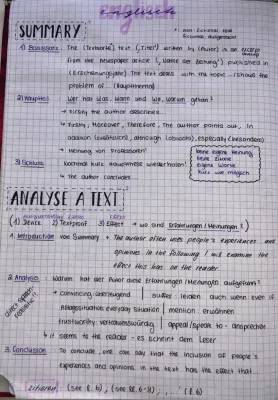 englisch
SUMMARY
* non-fictional text
1) Basissatz: The (Textsorte) text ("Titel") written by (Autor) is an excerpt
from the newspaper article ("Name der Zeitung") published in
(Erscheinungsjahr). The text deals with the topic /should the
problem of ... (Hauptthema)
2) Hauptteil: Wer hat was, wann und wie, warum getan?
→ Firstly the author describes...
→ Firstly, Moreover, Therefore, The author points out, In
addition (zusätzlich), although (obwohl), especially (besonders)
→ Meinung von Professoren!
3) Schluss: nochmal kurz Hauptthese wiederholen!
→ The author concludes
keine eigene Meinung
keine Zitate
eigene Worte
kurz wie möglich
ANALYSE A TEXT
(1) Device 2) Textproof 3) Effect → wo sind Erfahrungen/Meinungen?)
1. Introduction von Summary + The author often uses people's experiences and
opinions. In the following I will examine the
effect this has on the reader
2. Analysis: Warum hat der Autor diese Erfahrungen/Meinungen aufgeführt?
→ convincing: überzeugend | suffer: leiden auch wenn: even if
Alltagssituation: everyday situation | mention: erwähnen
trustworthy: vertrauenswürdig | appeal/speak to - ansprechen
↳ it seems to the reader - es scheint dem Leser
3. Conclusion: To conclude, one can say that the inclusion of people's
experiences and opinions in the text has the effect that...
zitieren: (see l. 6), (see ll. 6-8), "..." (l. 6)